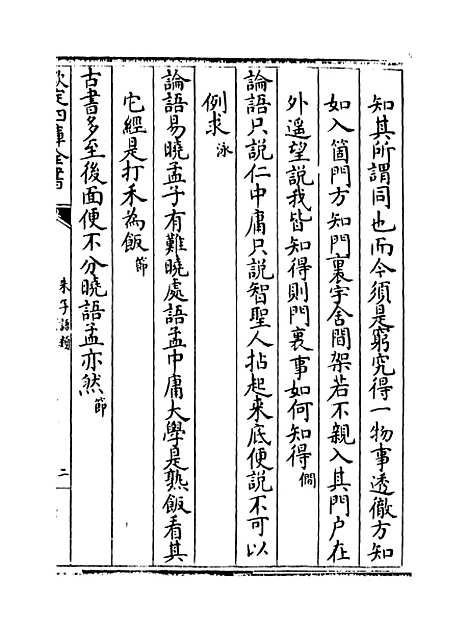 知其所謂同也而今須是窮究得一物事透徹方知
如入箇門方知門裏宇舍間架若不親入其門户在
外遥望說我皆知得則門裏事如何知得僩
論語只說仁中庸只說智聖人拈起來底便說不可以
例求泳
論語易曉孟子有難曉處語孟中庸大學是熟飯看其
它經是打禾為飯節
古書多至後面便不分曉語孟亦然節
欽定四庫全書
朱子語類
二